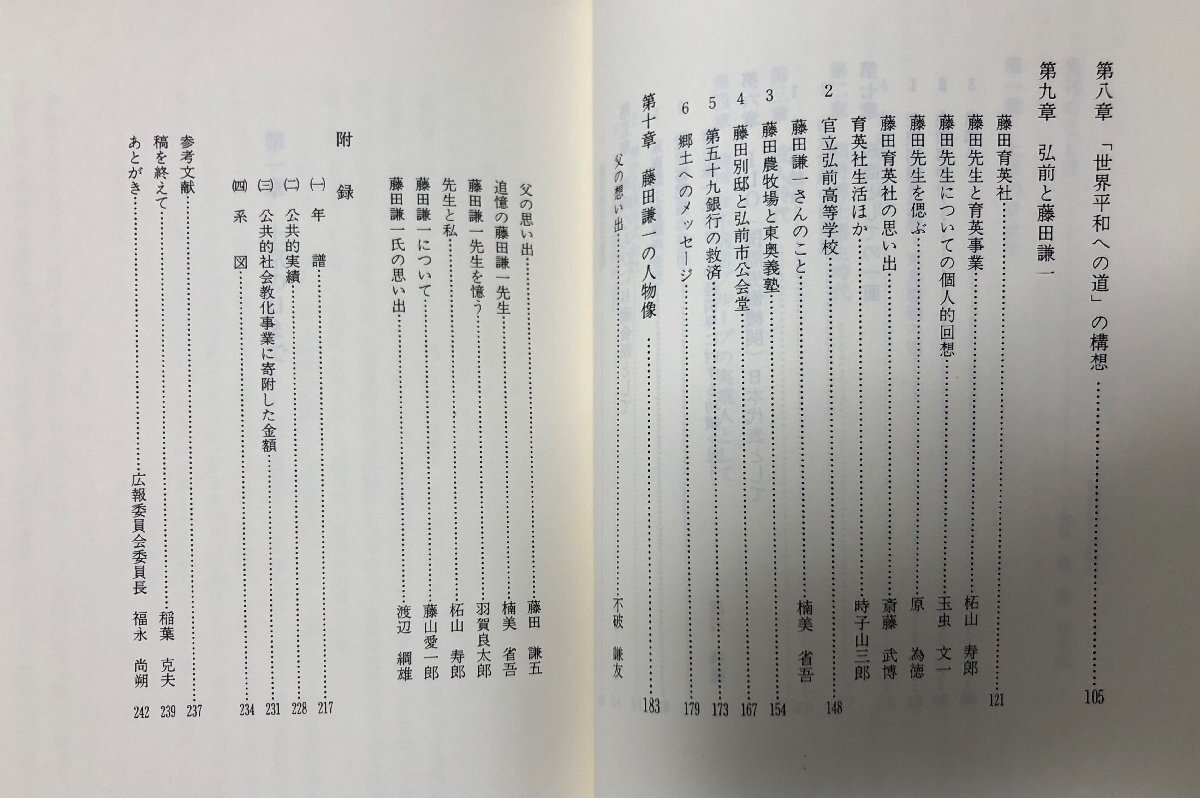 第八章　「世界平和への道」の構想……105
第九章　弘前と藤田謙一
藤田育英社……121
藤田先生と育英事業……柘山　寿郎
藤田先生についての個人的回想……玉虫　文一
藤田先生を偲ぶ……原　為徳
藤田育英社の思い出……斎藤　武博
育英社生活ほか……時子山三郎
2　官立弘前高等学校……148
藤田謙一さんのこと……楠美　省吾
3　藤田農牧場と東奥義塾……154
4　藤田別邸と弘前市公会堂……167
5　第五十九銀行の救済……173
6　郷土へのメッセージ……179
第十章　藤田謙一の人物像……183
父の想い出……不破　謙友
父の思い出……藤田　謙五
追憶の藤田謙一先生……楠美　省吾
藤田謙一先生を憶う……羽賀良太郎
先生と私……柘山　寿郎
藤田謙一について……藤山愛一郎
藤田謙一氏の思い出……渡辺　綱雄
附　録
㈠　年　譜……217
㈡　公共的実績……228
㈢　公共的社会教化事業に寄附した金額……231
㈣　系　図……234
参考文献……237
稿を終えて……稲葉　克夫　239
あとがき……広報委員会委員長　福永　尚朔　242